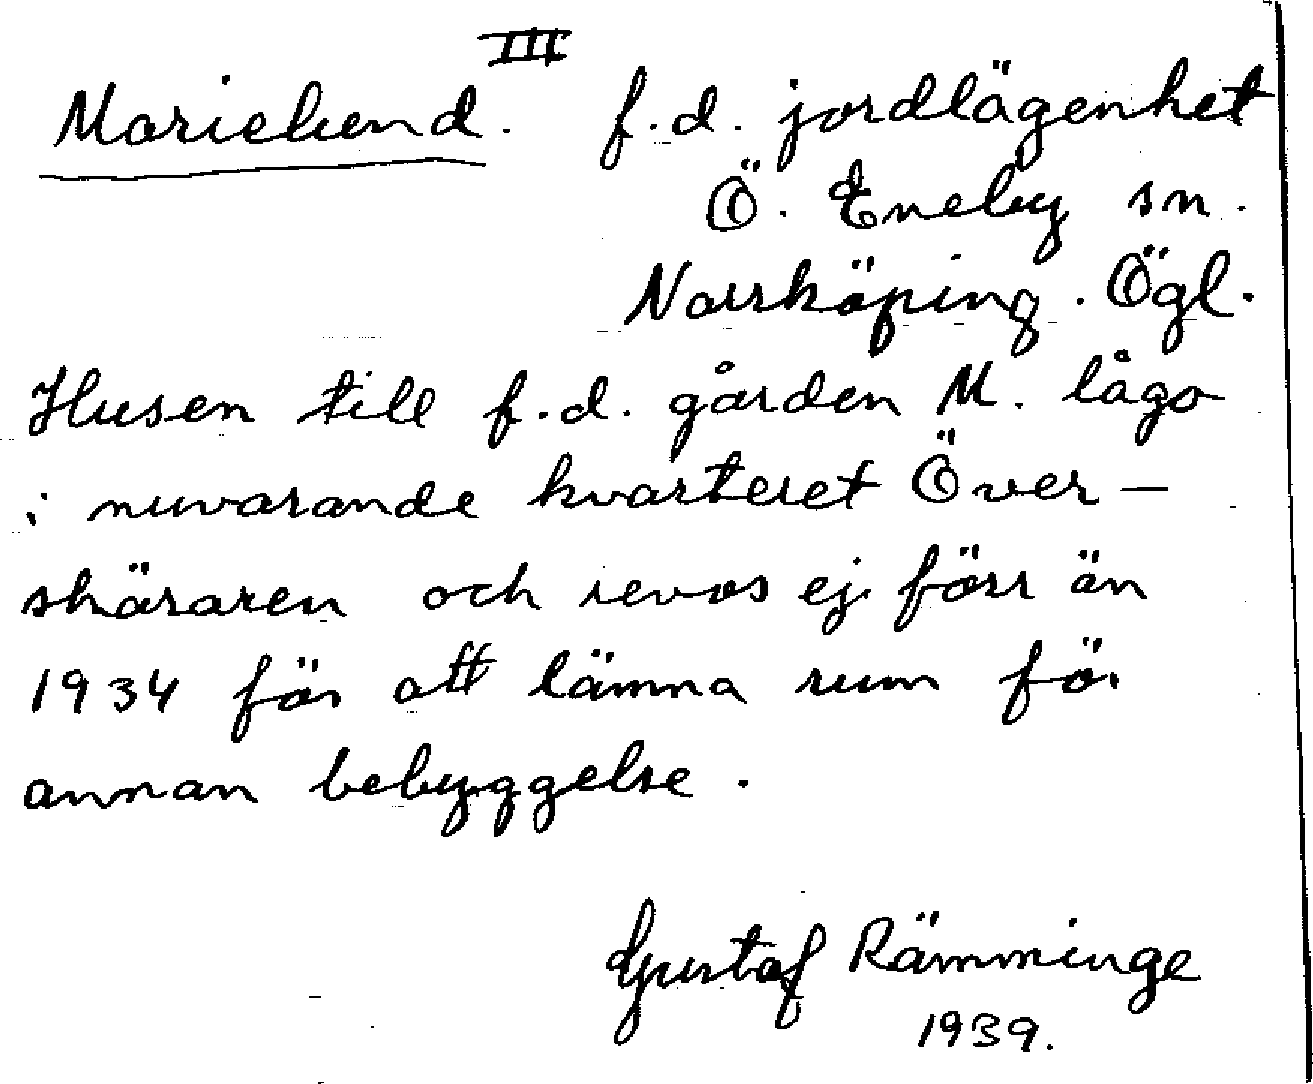 III
Marielund. f.d. jordlägenhet
Ö. Eneby sn.
Norrköping. Ögl.
Husen till f.d. gården M. lågo
i nuvarande kvarteret Över-
skäraren och revos ej förr än
1934 för att lämna rum för
annan bebyggelse.
Gustaf Rämminge
1939.